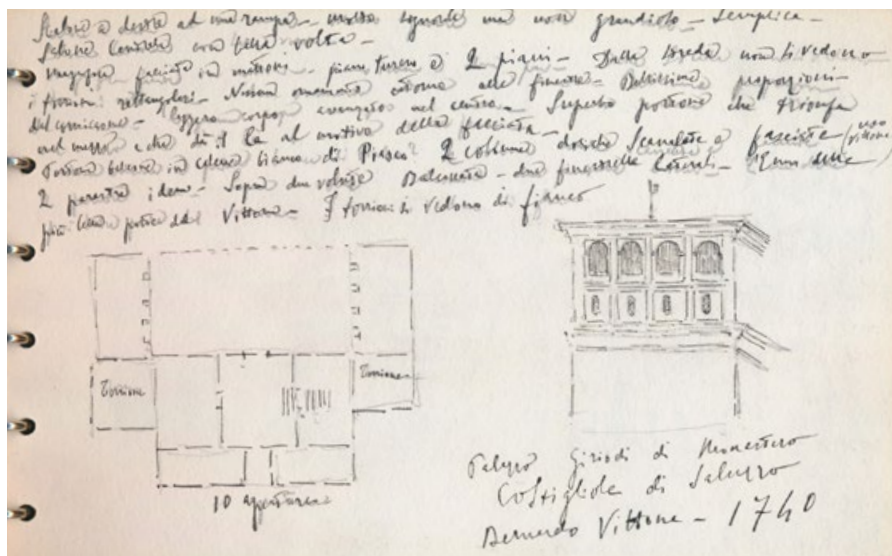 Scalone a destra ad una rampa - molto signorile ma non grandioso - Semplice -
Salone Centrale con bella volta -
facciata in mattone - piano terreno e 2 piani - Dalla strada non si vedono
i torrioni rettangolari - Nessun ornamento intorno alle finestre - Bellissime proporzioni -
del cornicione - leggero corpo avanzato nel centro - Superbo portone che trionfa
nel mezzo e che dà il la al motivo della facciata -
Portone in bianco di Piasco 2 colonne doriche Scanalate e fasciate (uso Vittone)
2 paraste idem - Sopra due volute Balconata - due finestrelle laterali - È una delle
più belle porte del Vittone - I torrioni si vedono di fianco
Torrione
Torrione
10
Palazzo Giriodi di Monastero
Costigliole di Saluzzo
Bernardo Vittone - 1740